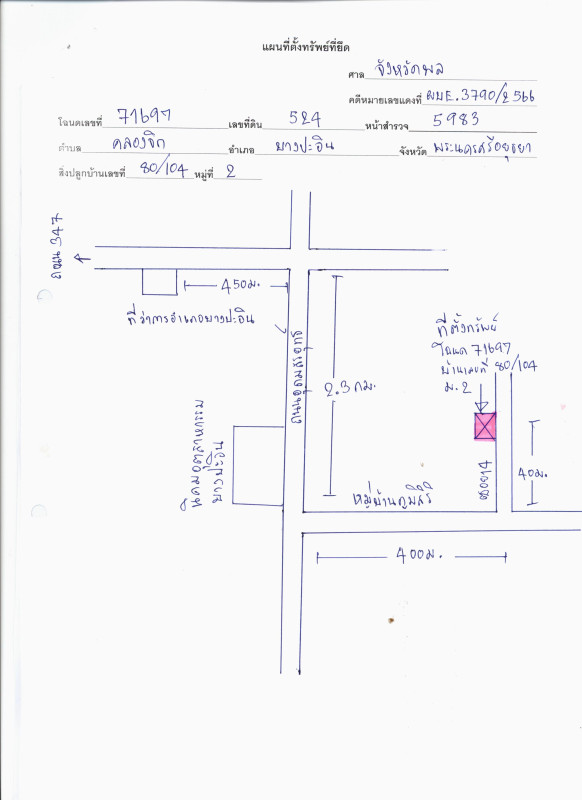 แผนที่ตั้งทรัพย์ที่ยึด
ศาล จังหวัดพล
คดีหมายเลขแดงที่ ผบE.3790/2566
โฉนดเลขที่ 71697 เลขที่ดิน 524 หน้าสำรวจ 5983
ตำบล คลองจิก อำเภอ บางปะอิน จังหวัด พระนครศรีอยุธยา
สิ่งปลูกบ้านเลขที่ 80/104 หมู่ที่ 2
ถนน 347
450ม.
ที่ว่าการอำเภอบางปะอิน
ถนนอุดมสรยุทธ์
2.3 กม.
ที่ตั้งทรัพย์
โฉนด 71697
บ้านเลขที่ 80/104
ม.2
นิคมอุตสาหกรรม
บางปะอิน
ซอย14
40ม.
หมู่บ้านภูมิสิริ
400ม.